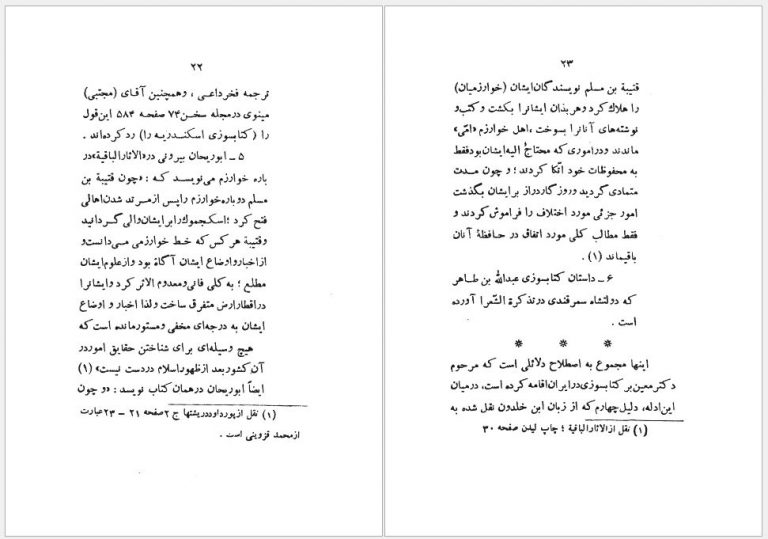 ۲۲
ترجمه فخرداعی ، وهمچنین آقای (مجتبی)
مینوی درمجله سخن ۷۴ صفحه ۵۸۴ این قول
را (کتابسوزی اسکندریه را) رد کرده‌اند .
۵ ــ ابوریحان بیرونی در «الاثارالباقیة» در
باره خوارزم می‌نویسد که : «چون قتیبة بن
مسلم دوباره خوارزم را پس از مرتد شدن اهالی
فتح کرد ؛ اسکجموک را برایشان والی گردانید
وقتیبة هر کس که خط خوارزمی می‌دانست و
از اخبار و اوضاع ایشان آگاه بود و از علوم ایشان
مطلع ؛ به کلی فانی و معدوم الاثر کرد و ایشانرا
در اقطار ارض متفرق ساخت ولذا اخبار و اوضاع
ایشان به درجه‌ای مخفی و مستور مانده است که
هیچ وسیله‌ای برای شناختن حقایق امور در
آن کشور بعد از ظهور اسلام در دست نیست» (۱)
ایضاً ابوریحان درهمان کتاب نویسد : «و چون
(۱) نقل از پورداود دریشتها ج ۲ صفحه ۲۱ – ۲۳ عبارت
از محمد قزوینی است .
۲۳
قتیبة بن مسلم نویسندگان ایشان (خوارزمیان)
را هلاك کرد و هربذان ایشانرا بکشت و کتب و
نوشته‌های آنانرا بسوخت ، اهل خوارزم «امّی»
ماندند و دراموری که محتاجُ الیه ایشان بود فقط
به محفوظات خود اتّکا کردند ؛ و چون مدت
متمادی گردید و روزگار دراز برایشان بگذشت
امور جزئی مورد اختلاف را فراموش کردند و
فقط مطالب کلی مورد اتفاق در حافظهٔ آنان
باقیماند (۱) .
۶ ــ داستان کتابسوزی عبدالله بن طاهر
که دولتشاه سمرقندی در تذکرة الشّعرا آورده
است .
* * *
اینها مجموع به اصطلاح دلائلی است که مرحوم
دکتر معین بر کتابسوزی در ایران اقامه کرده است، درمیان
این ادله، دلیل چهارم که از زبان ابن خلدون نقل شده به
(۱) نقل از الاثارالباقیة ؛ چاپ لیدن صفحه ۳۰